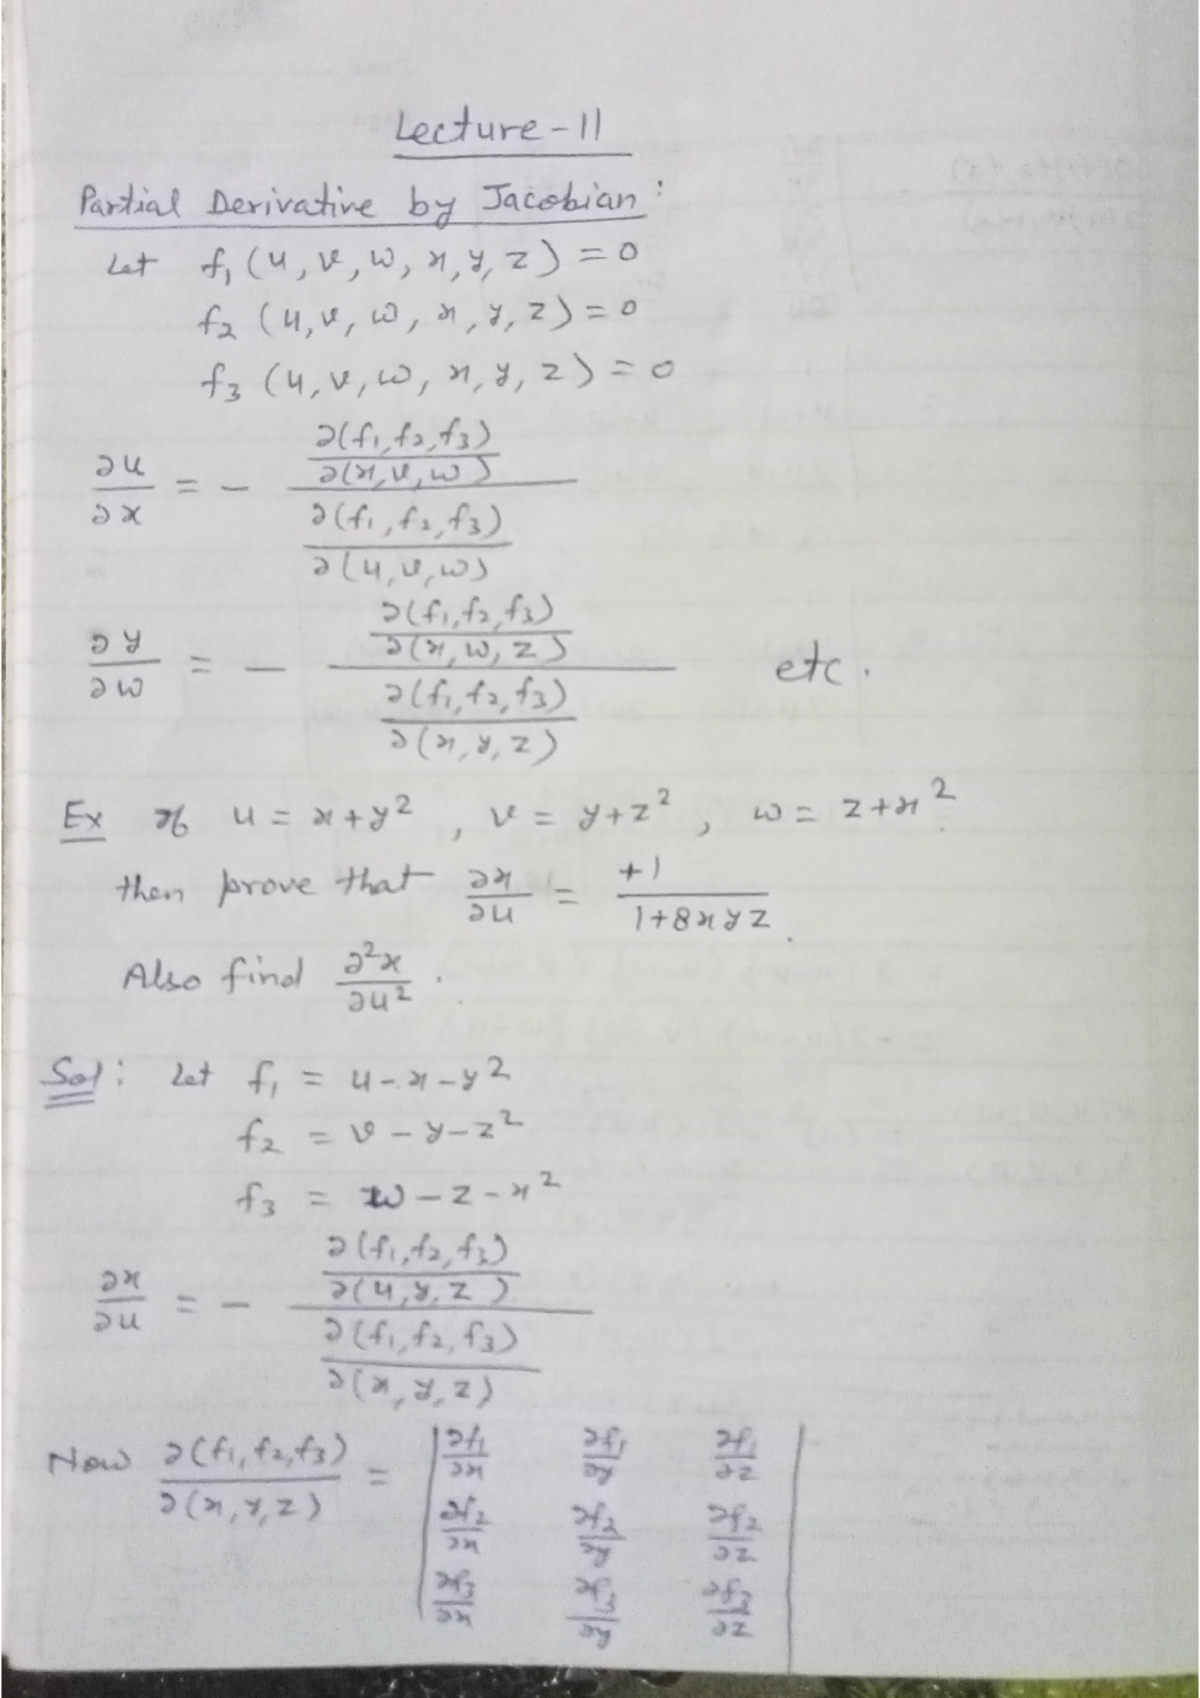 Lecture-11
Partial Derivative by Jacobian:
Let f₁(u, v, w, x, y, z) = 0
f₂(u, v, w, x, y, z) = 0
f₃(u, v, w, x, y, z) = 0
∂u/∂x = - [∂(f₁, f₂, f₃)/∂(x, v, w)] / [∂(f₁, f₂, f₃)/∂(u, v, w)]
∂y/∂w = - [∂(f₁, f₂, f₃)/∂(x, w, z)] / [∂(f₁, f₂, f₃)/∂(x, y, z)] etc.
Ex If u = x + y², v = y + z², w = z + x²
then prove that ∂x/∂u = +1/(1+8xyz).
Also find ∂²x/∂u².
Sol: Let f₁ = u - x - y²
f₂ = v - y - z²
f₃ = w - z - x²
∂x/∂u = - [∂(f₁, f₂, f₃)/∂(u, y, z)] / [∂(f₁, f₂, f₃)/∂(x, y, z)]
Now ∂(f₁, f₂, f₃)/∂(x, y, z) = | ∂f₁/∂x ∂f₁/∂y ∂f₁/∂z |
| ∂f₂/∂x ∂f₂/∂y ∂f₂/∂z |
| ∂f₃/∂x ∂f₃/∂y ∂f₃/∂z |